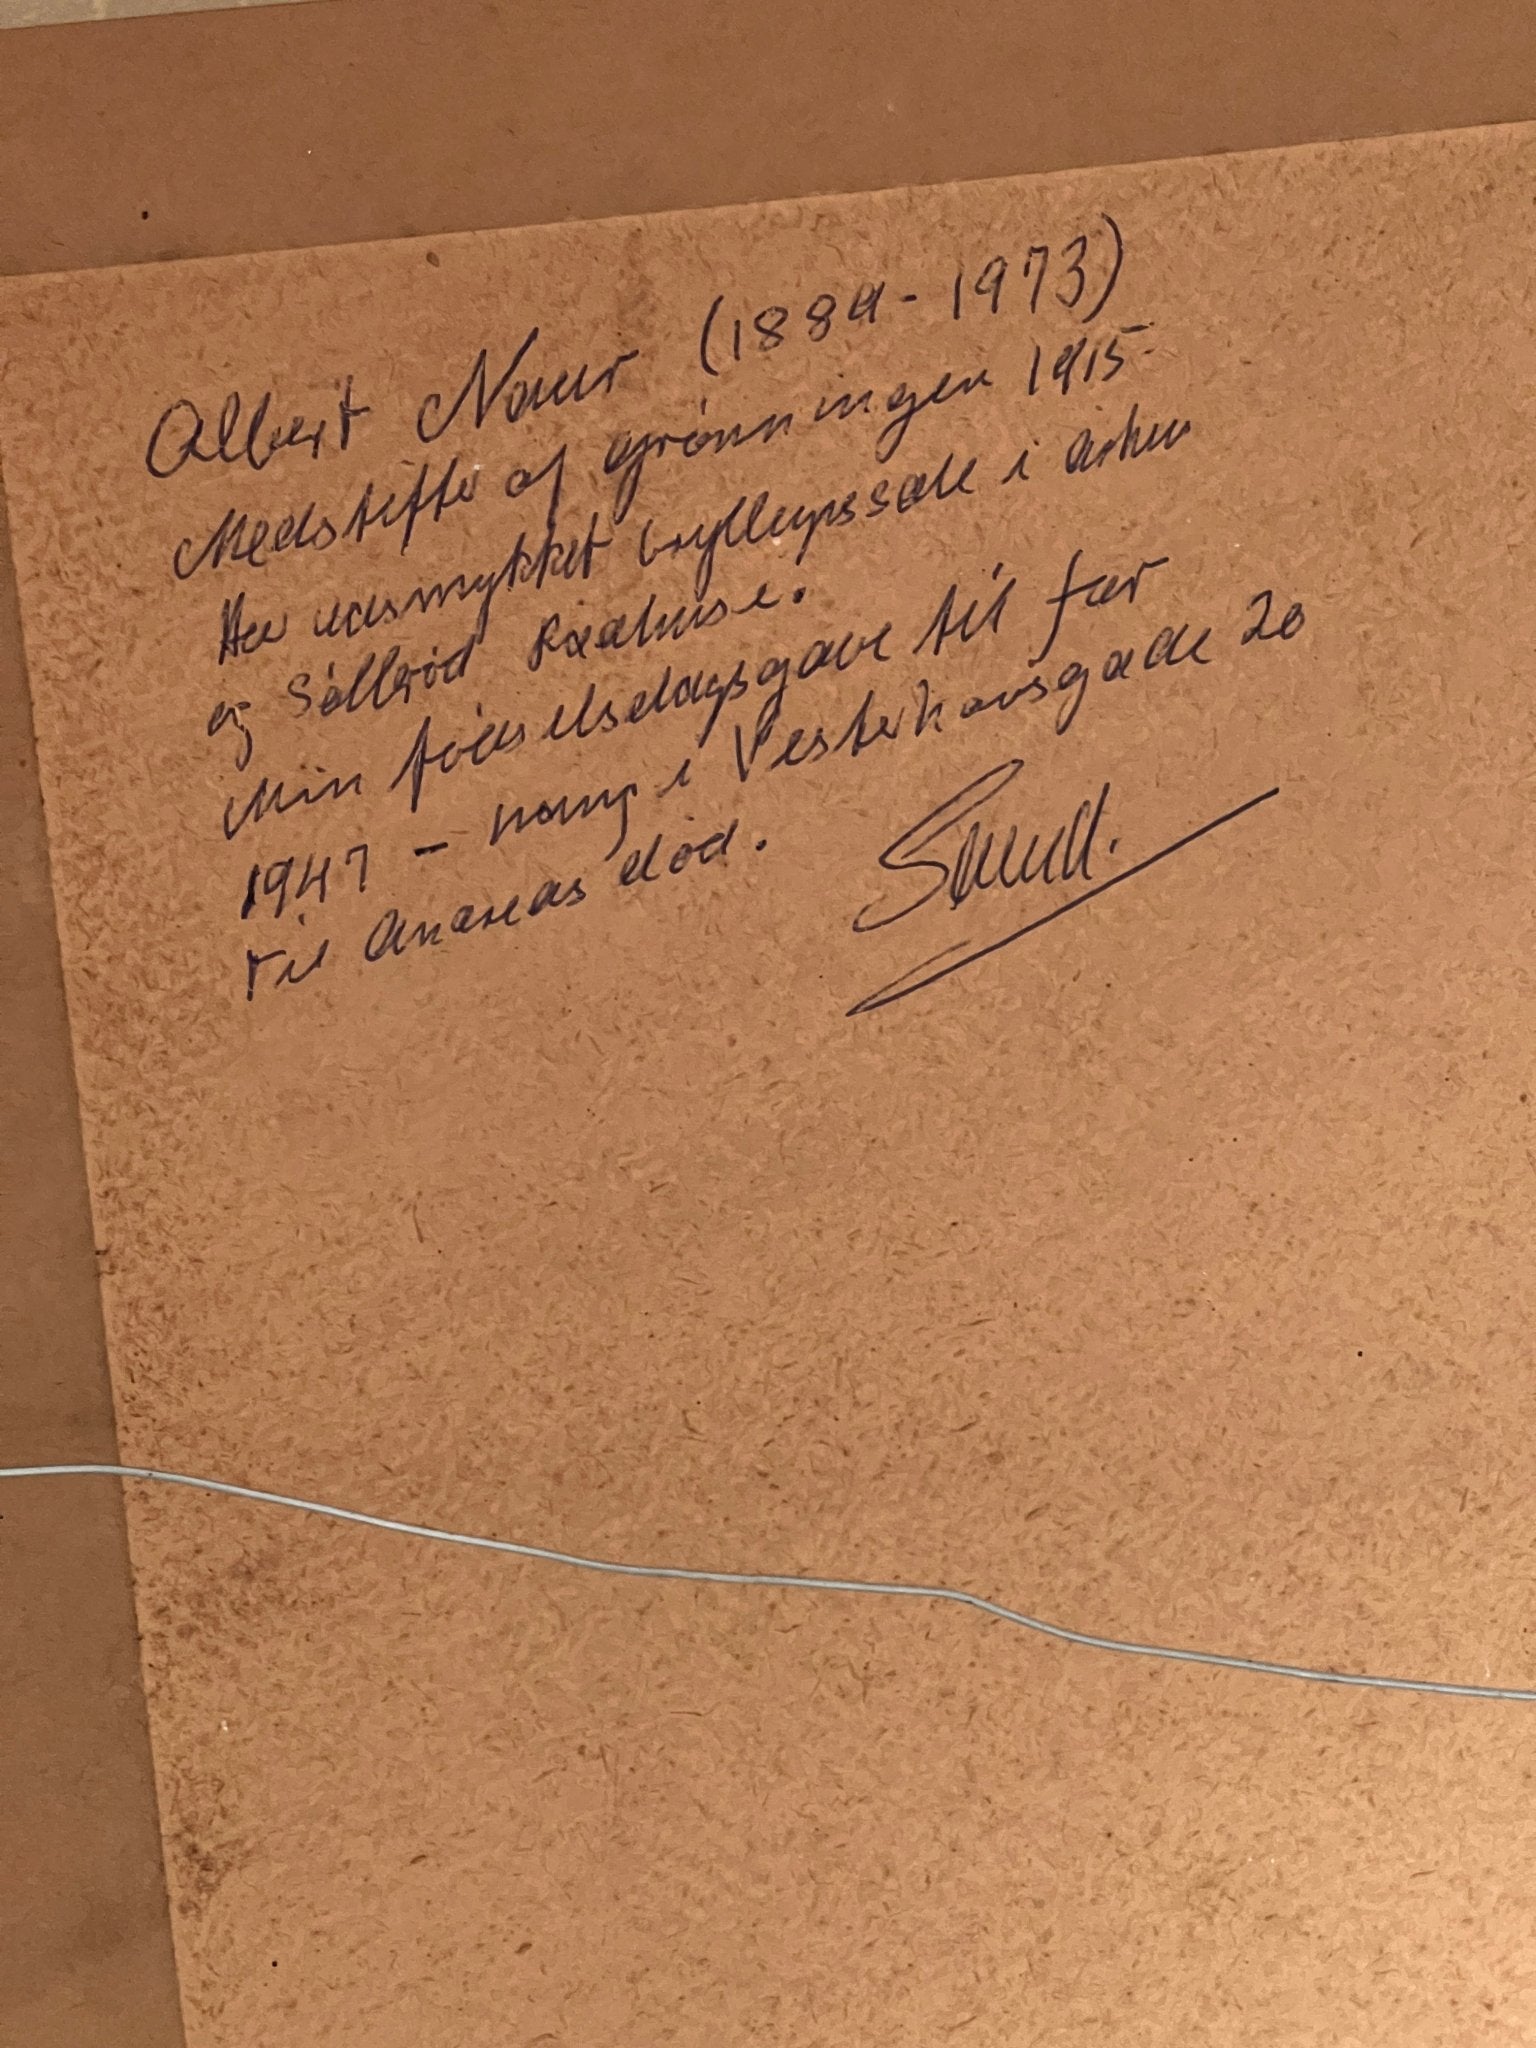 Albert Naur (1889-1973)
Medstifter af grønningen 1915-
Har udsmykket bryllupssale i Århus
og Søllerød Raadhuse.
Min fødselsdagsgave til far
1947 - hang i Vesterhavsgade 20
til Andreas død.